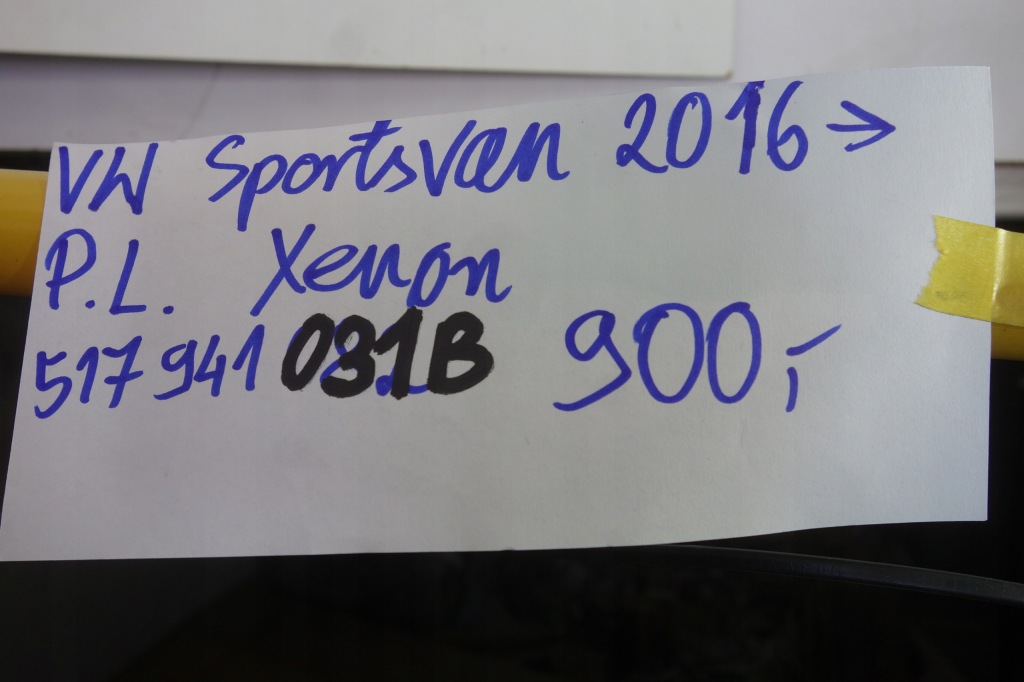 VW Sportsvan 2016 →
P.L. Xenon
517 941 031B 900,-